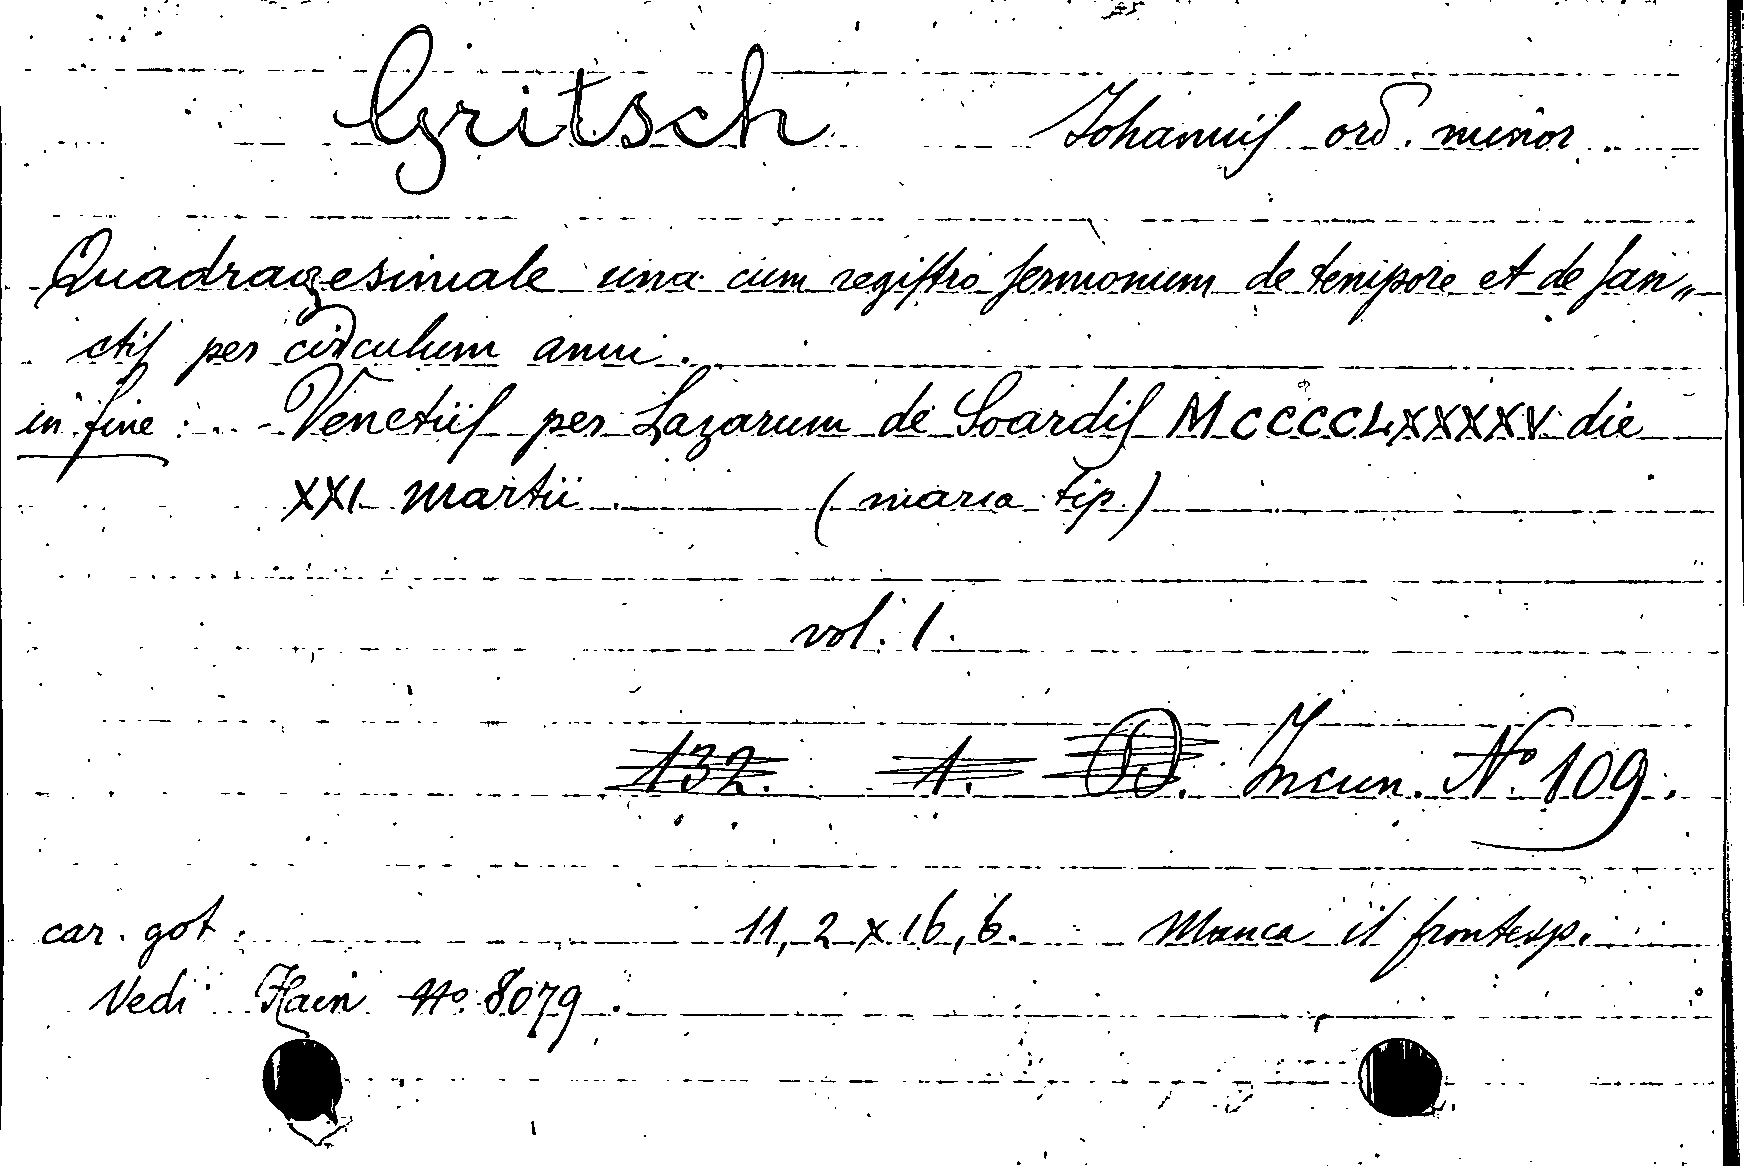 Gritsch Johannis ord. minor.
Quadragesimale una cum registro sermonum de tempore et de san„
ctis per circulum anni.
in fine: - Venetiis per Lazarum de Soardis MCCCCLXXXXV die
XXI Martii (marca tip.)
vol. 1.
132. 1. D. Incun. Nº 109.
car. got. 11,2 x 16,6. Manca il frontesp.
Vedi Hain Nº 8079.